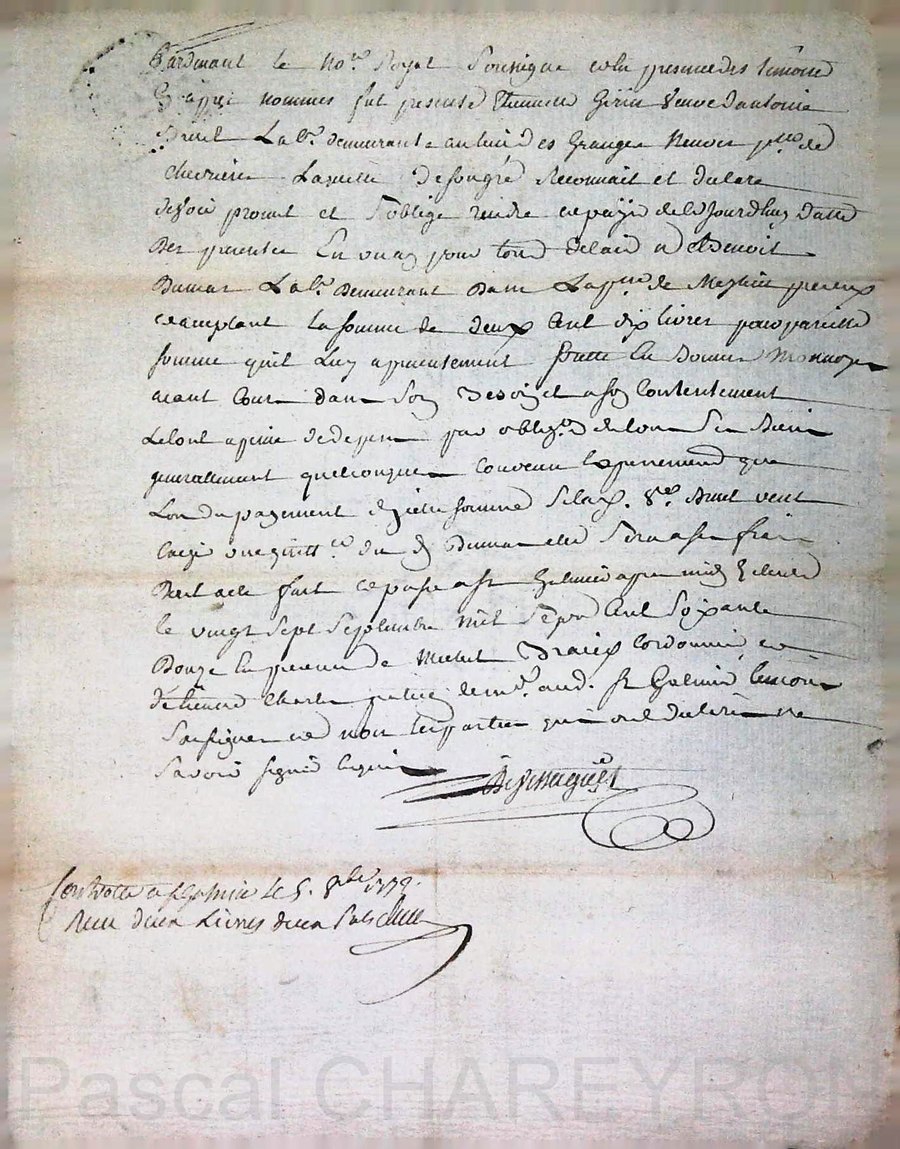 Pardevant le no.re Royal Soussigné et en presence des temoins
Cy après nommés fut presente Etiennette Girin veuve d'antoine
Bruel Lab.r demeurante au lieu des Granges Neuves p.sse de
chevrieres Laquelle de son gré Reconnait et declare
devoir promet et s'oblige rendre et payer de ce Jourdhuy datte
des presentes En un an pour tout delaid a Benoit
Dumas Lab.r Demeurant Dans La p.sse de present
et acceptant la somme de deux Cent dix livres pour pareille
somme qu'il Luy a presentement prettée En bonnes Monnoyes
ayant Cours dans son besoin et a son Contentement
Le tout a peine de depens par oblig.on de tous ses Biens
generallement quelconques Convenu Expressement que
Lors du payement de ditte somme Si la v.e Bruel veut
Exiger une quitt.ce du d. Dumas elle Sera a ses frais
Dont acte fait et passé a St Galmier apres midy
le vingt Sept Septembre mil Sept Cent Soixante
Douze En presence de Michel Cordonnier et
d'Etienne Charles m.d aud. St Galmier temoins
Soussignés et non les parties qui ont declaré ne
Savoir signer Enquis
Controllé a St Galmier Le 5. 8bre 1772.
Recu deux Livres deux Sols
Pascal CHAREYRON